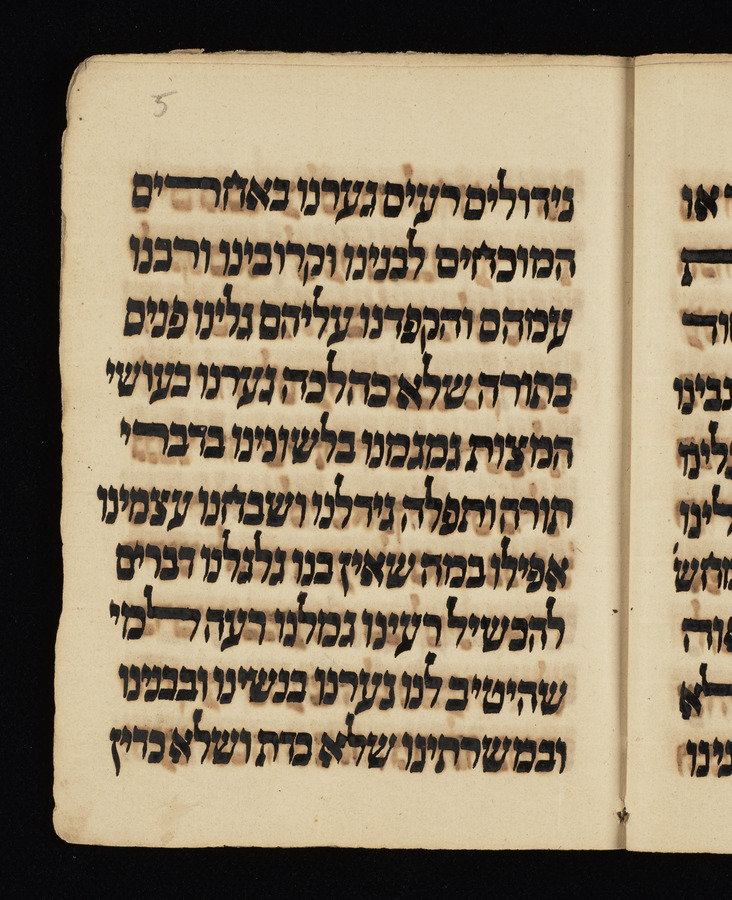 5
גידולים רעים גערנו באחרים
המוכחים לבנינו וקרובינו ורבנו
עמהם והקפדנו עליהם גלינו פנים
בתורה שלא כהלכה גערנו בעושי
המצות גמגמנו בלשונינו בדברי
תורה ותפלה גידלנו ושבחנו עצמינו
אפילו במה שאין בנו גלגלנו דברים
להכשיל רעינו גמלנו רעה למי
שהיטיב לנו גערנו בנשינו ובבנינו
ובמשרתינו שלא כדת ושלא כדין